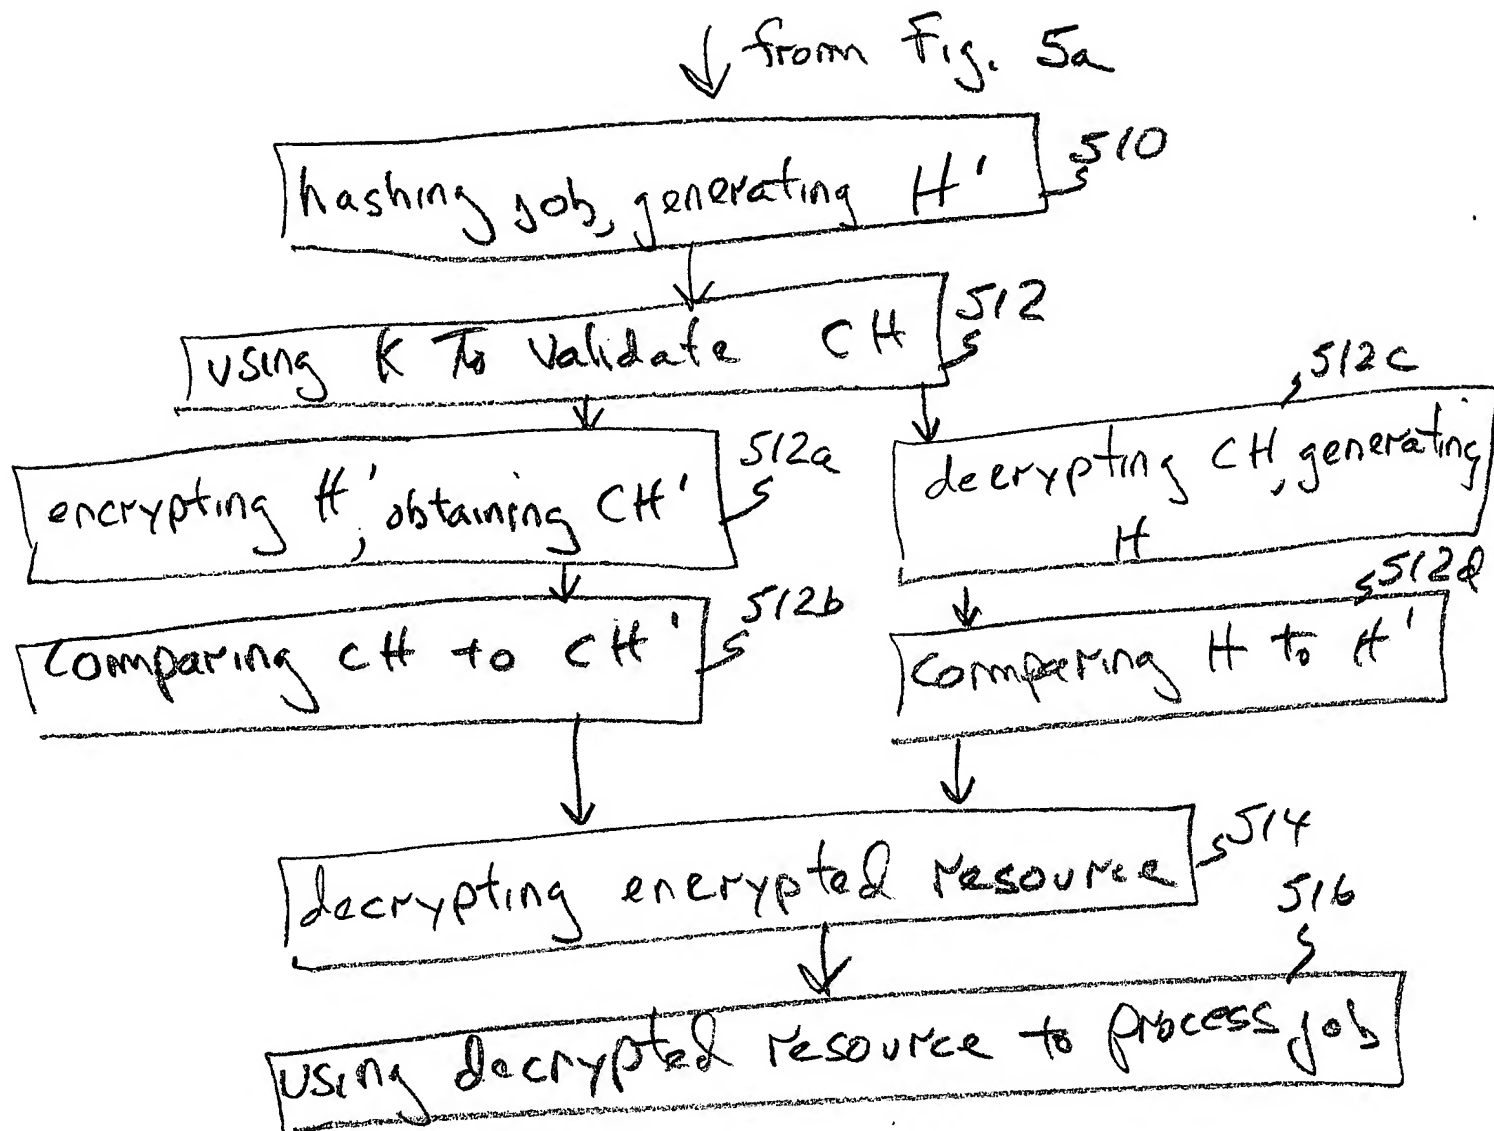 from Fig. 5a
hashing job, generating H'
510
using K To validate CH
512
encrypting H', obtaining CH'
512a
decrypting CH, generating
H
512c
comparing CH to CH'
512b
comparing H to H'
512d
decrypting encrypted resource
514
using decrypted resource to process job
516